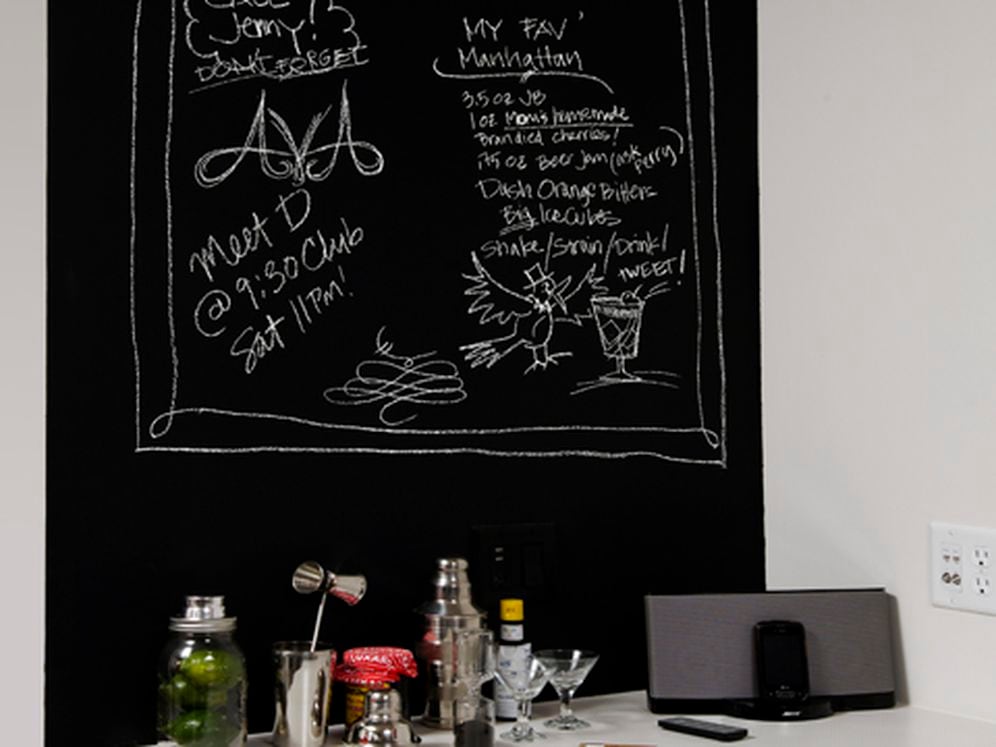 Jenny!
DON'T FORGET
AVA
Meet D
@ 9:30 Club
Sat 11 PM!
MY FAV'
Manhattan
3.5 oz JB
1 oz Mom's homemade
Brandied cherries!
.175 oz Beer Jam (ask Perry)
Dash Orange Bitters
Big Ice Cubes
Shake/Strain/Drink/
TWEET!